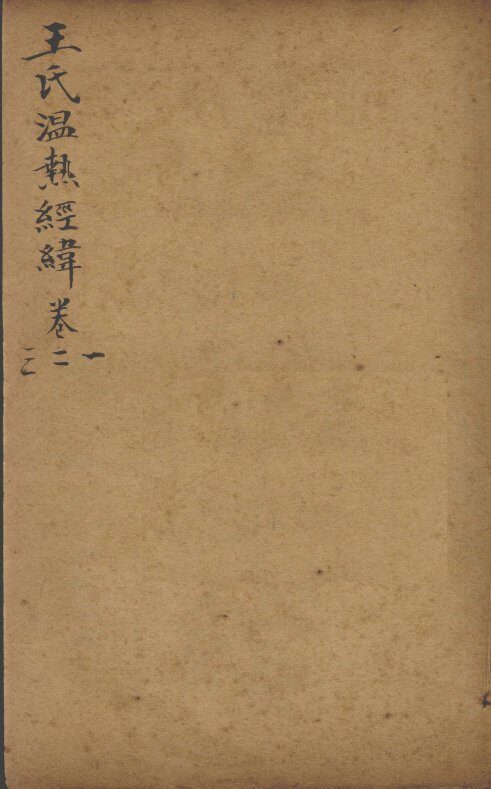 王氏温熱經緯 卷
一
二
三